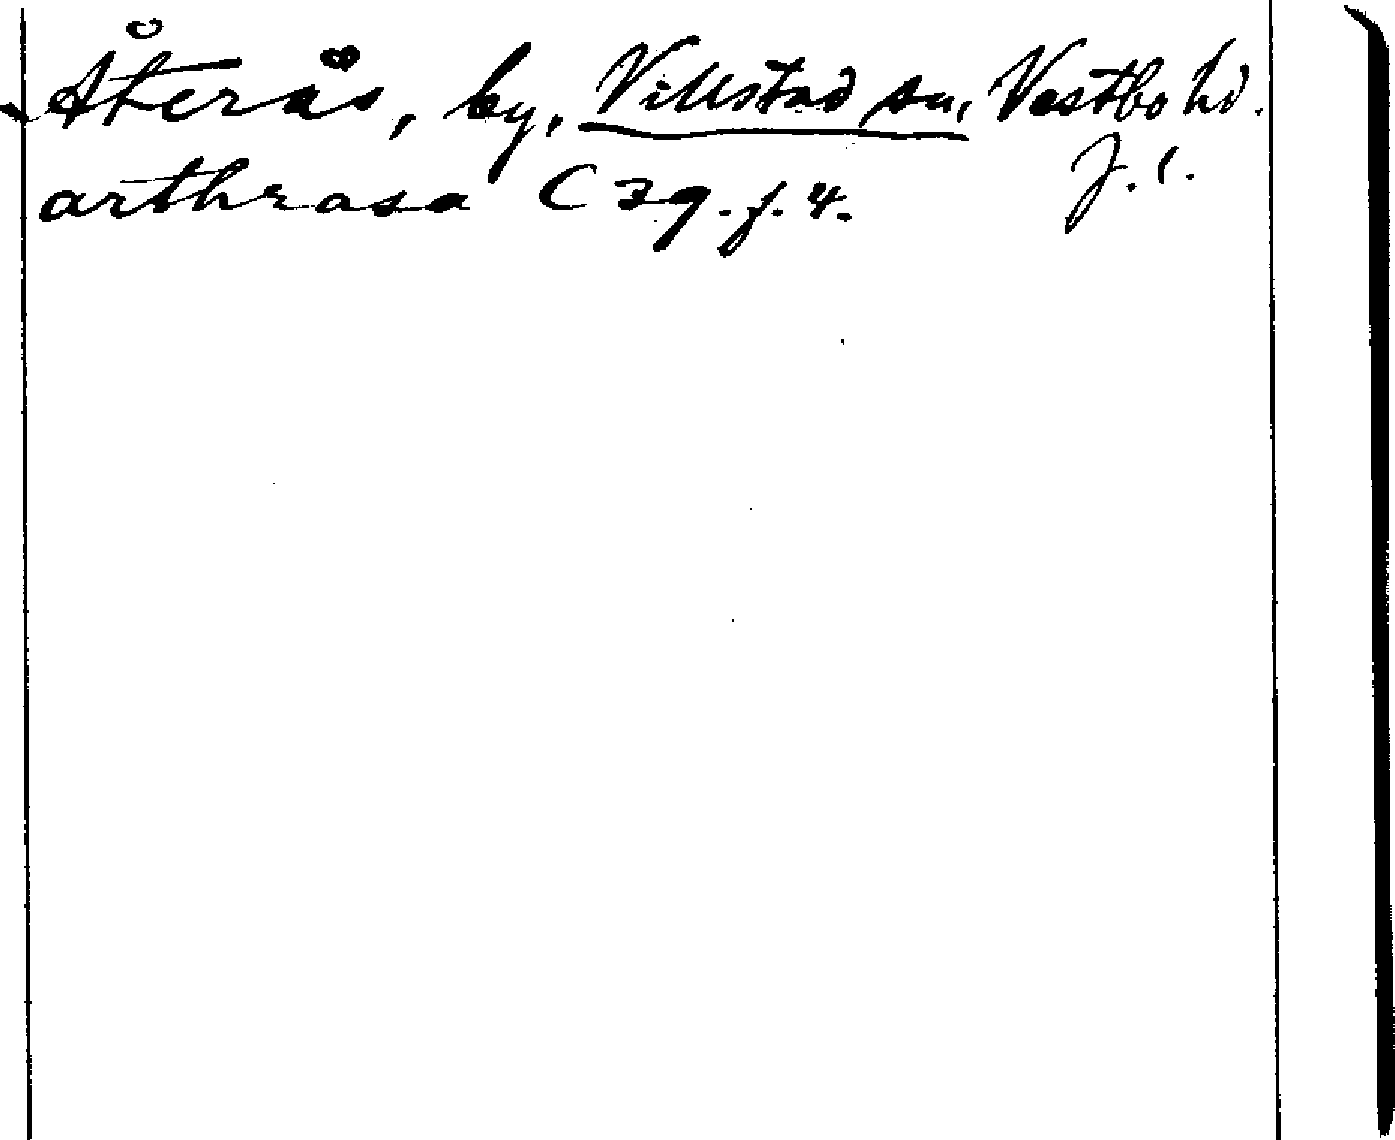 Återås, by, Villstad sn, Vestbo hd.
J. l.
arthrasa C 39. f. 4.